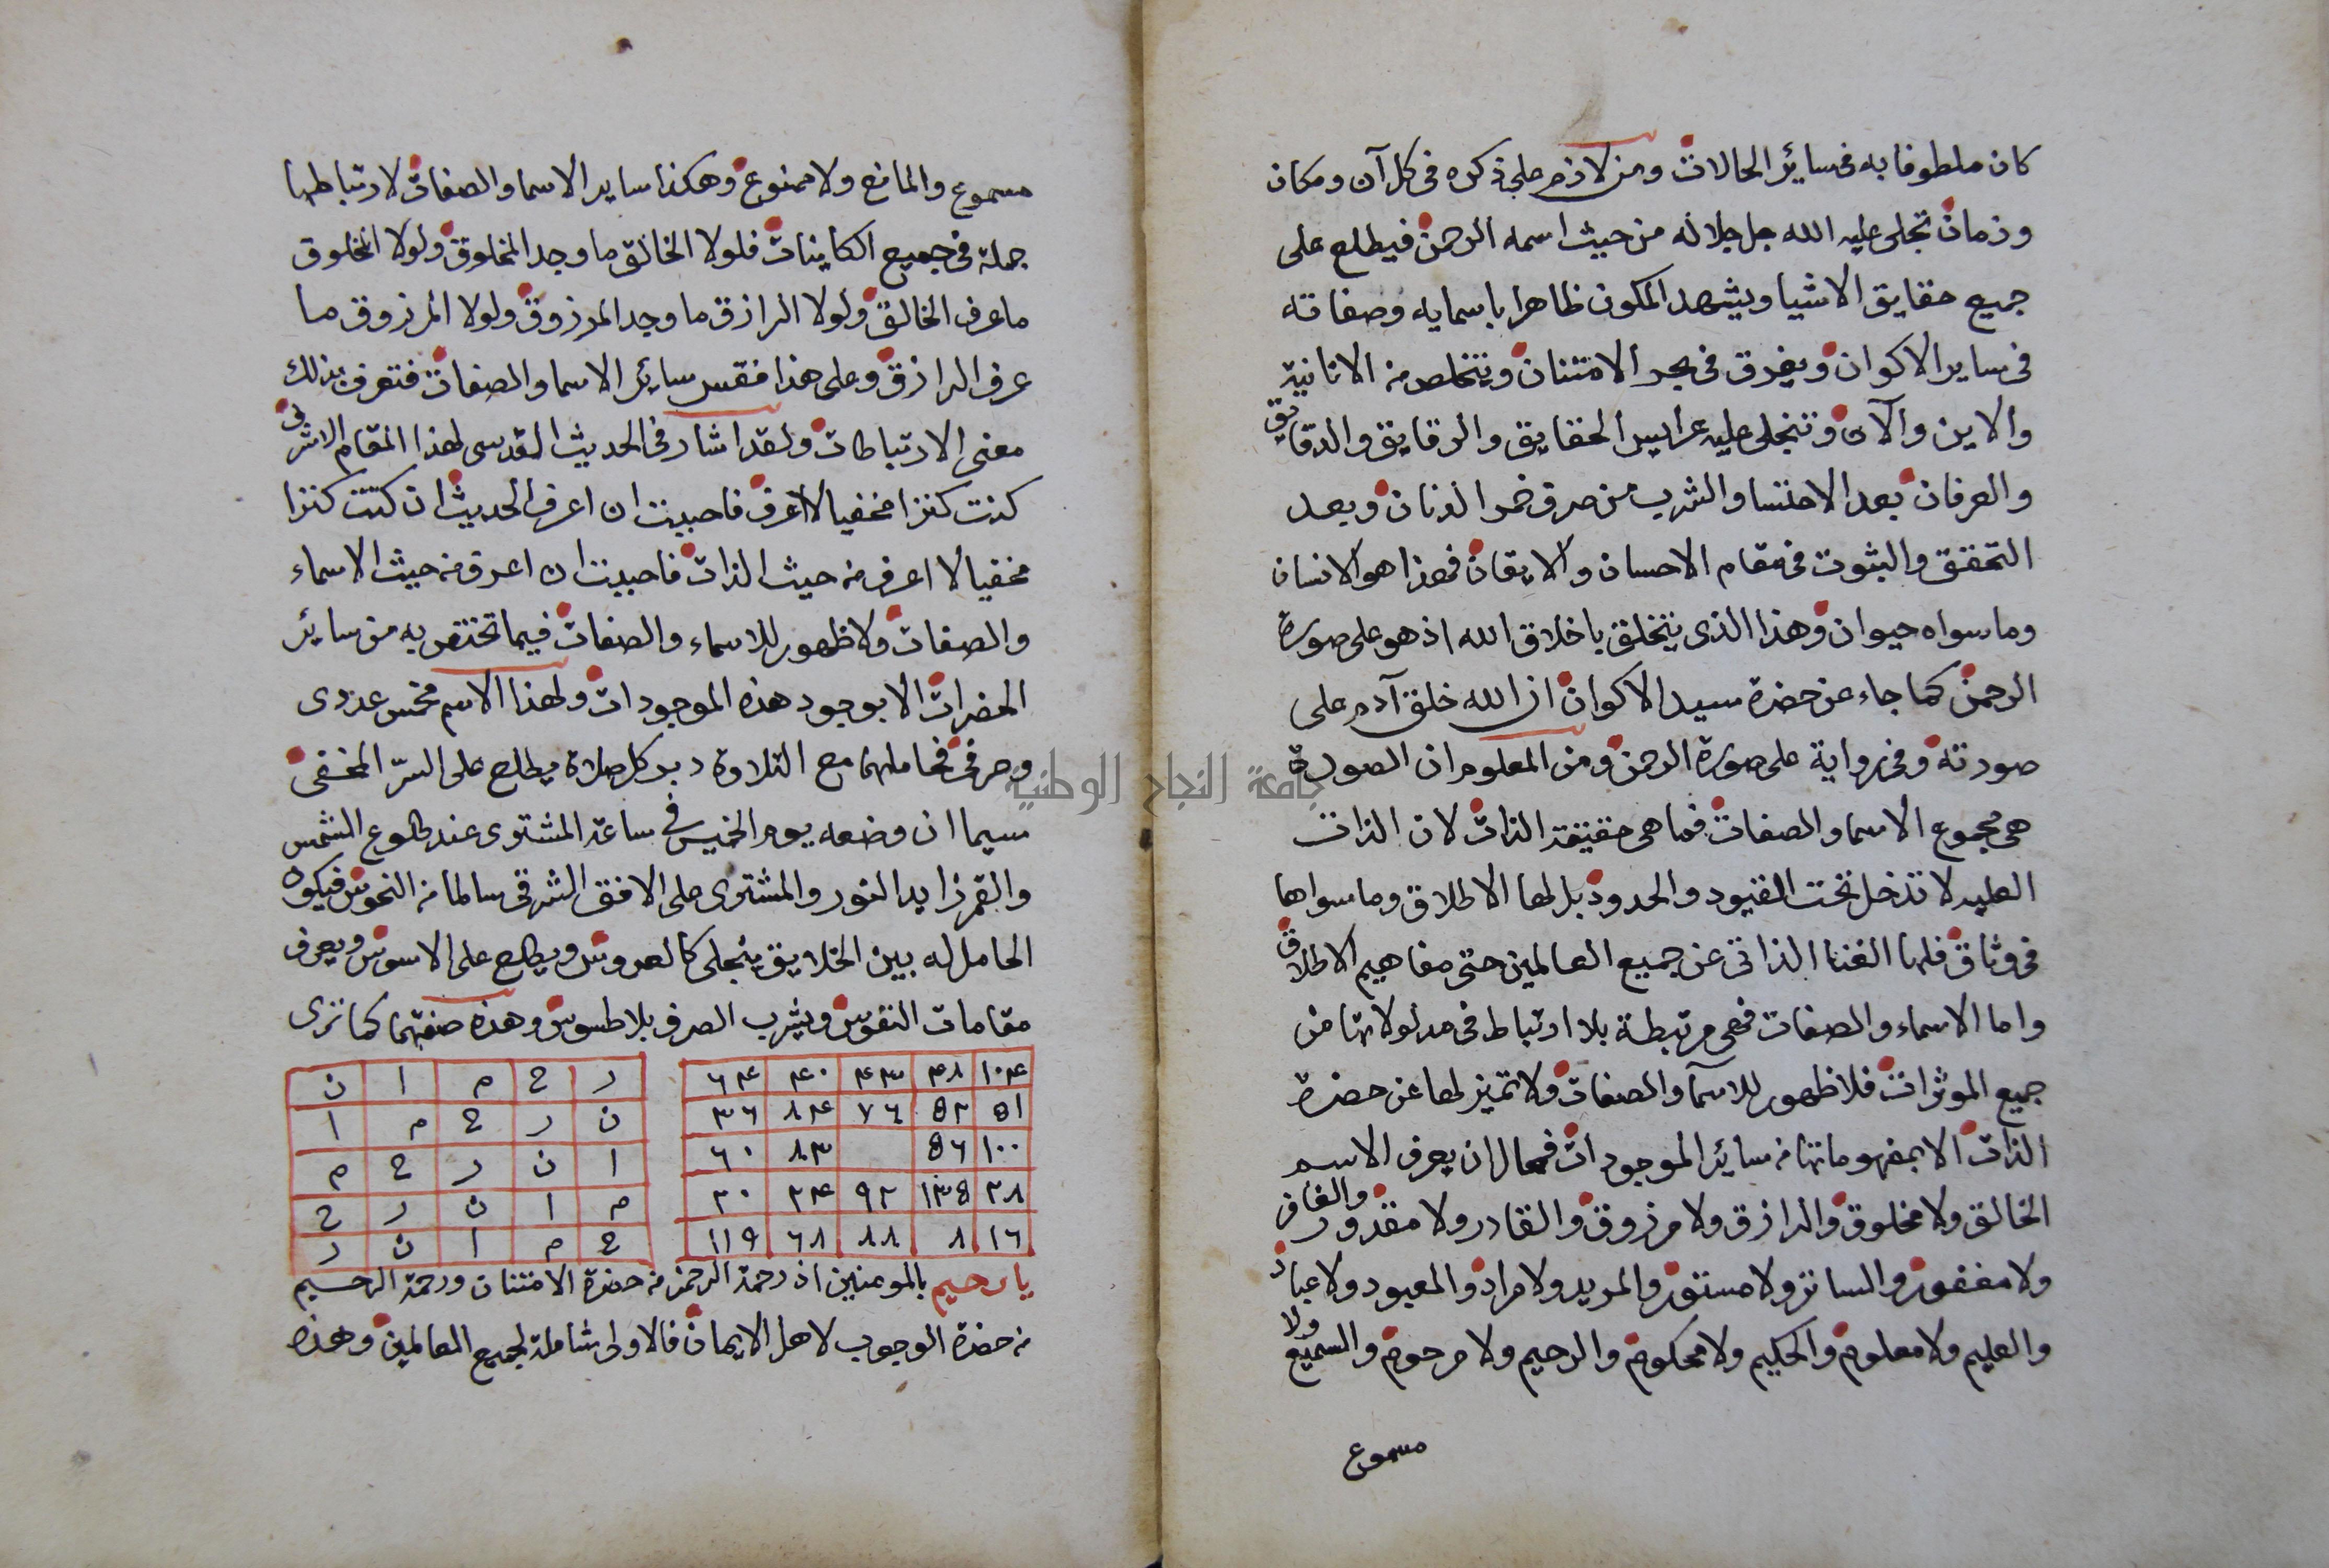 كان ملطوفا به فى سائر الحالات ومن لازم على ذكره فى كل آن ومكان
وزمان تجلى عليه الله جل جلاله من حيث اسمه الرحمن فيطلع على
جميع حقايق الاشيا ويشهد المكون ظاهرا باسمايه وصفاته
فى ساير الاكوان ويغرق فى بحر الامتنان ويتخلص من الانانية
والاين والآن وتنجلى عليه عرايس الحقايق والرقايق والدقايق
والعرفان بعد الاحتسا والشرب من صرف خمر الدنان وبعد
التحقق والثبوت فى مقام الاحسان والايقان فهذا هو الانسان
وما سواه حيوان وهذا الذى يتخلق باخلاق الله اذ هو على صورة
الرحمن كما جاء عن حضرة سيد الاكوان ان الله خلق آدم على
صورته وفى رواية على صورة الرحمن ومن المعلوم ان الصورة
هى مجموع الاسما والصفات فما هى حقيقة الذات لان الذات
العليه لا تدخل تحت القيود والحدود بل لها الاطلاق وما سواها
فى وثاق فلها الغنا الذاتى عن جميع العالمين حتى مفاهيم الاطلاق
واما الاسماء والصفات فهى مرتبطة بلا ارتباط فى مدلولاتها من
جميع الموثرات فلا ظهور للاسمآ والصفات ولا تميز لها عن حضرة
الذات الا بمفهوماتها من سائر الموجودات فمحال ان يعرف الاسم
الخالق ولا مخلوق والرازق ولا مرزوق والقادر ولا مقدور والغافر
ولا مغفور والساتر ولا مستور والمريد ولا مراد والمعبود ولا عباد
والعليم ولا معلوم والحكيم ولا محكوم والرحيم ولا مرحوم والسميع ولا
مسموع
مسموع والمانع ولا ممنوع وهكذا ساير الاسما والصفات لارتباطها
جملة فى جميع الكاينات فلولا الخالق ما وجد المخلوق ولولا المخلوق
ما عرف الخالق ولولا الرازق ما وجد المرزوق ولولا المرزوق ما
عرف الرازق وعلى هذا فقس سائر الاسما والصفات فتعرف بذلك
معنى الارتباطات ولقد اشار فى الحديث القدسى لهذا المقام الاشرفى
كنت كنزا مخفيا لا اعرف فاحببت ان اعرف الحديث ان كنت كنزا
مخفيا لا اعرف من حيث الذات فاحببت ان اعرف من حيث الاسماء
والصفات ولا ظهور للاسماء والصفات فيما تختص به من سائر
الحضرات الا بوجود هذه الموجودات ولهذا الاسم مخمس عددى
وحرفى فحاملهما مع التلاوة دبر كل صلاة يطلع على السرّ المخفى
سيما ان وضعه يوم الخميس فى ساعة المشترى عند طلوع الشمس
والقمر زايد النور والمشترى على الافق الشرقى سالما من النحوس فيكون
الحامل له بين الخلايق ينجلى كالعروس ويطلع على الاسوس ويعرف
مقامات النفوس ويشرب الصرف بلا طسوس وهذه صفتهما كما ترى
١٠٤ ٤٨ ٤٣ ٤٠ ٦٤
٥١ ٥٢ ٧٦ ٨٤ ٣٦
١٠٠ ٥٦ ٨٣ ٦٠
٢٨ ١٣٥ ٩٢ ٢٤ ٢٠
١٦ ٨ ٨٨ ٦٨ ١١٩
ر ح م ا ن
ن ر ح م ا
ا ن ر ح م
م ا ن ر ح
ح م ا ن ر
يا رحيم بالمومنين اذ رحمة الرحمن من حضرة الامتنان ورحمة الرحيم
من حضرة الوجوب لاهل الايمان فالاولى شاملة لجميع العالمين وهذه
جامعة النجاح الوطنية